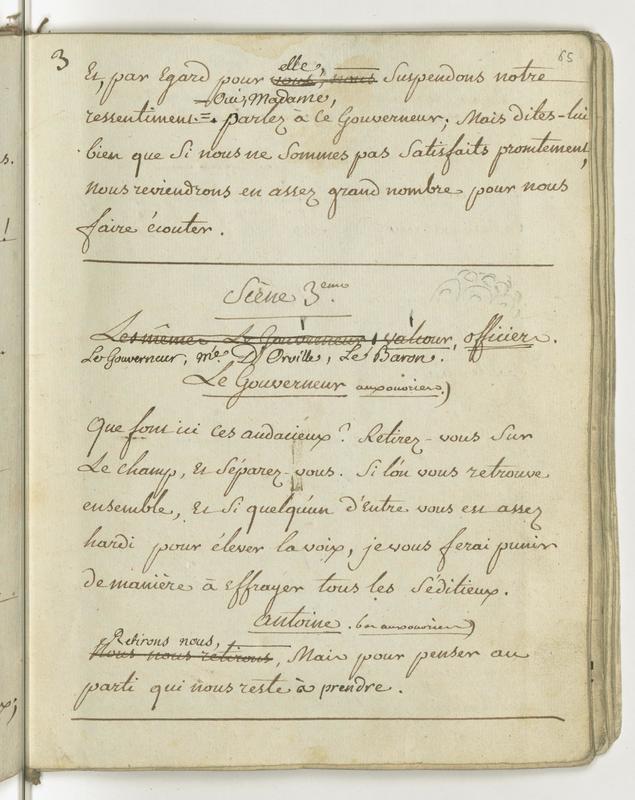 3
65
elle,
Et, par Egard pour vous, nous Suspendons notre
Oui, Madame,
ressentiment. = parlez à ce Gouverneur; Mais dites-lui
bien que Si nous ne Sommes pas Satisfaits promtement,
nous reviendrons en assez grand nombre pour nous
faire écouter.
Scène 3eme.
Les mêmes Le Gouverneur, valcour, officiers.
Le Gouverneur, me. D'Orville, Le Baron.
Le Gouverneur aux ouvriers)
Que font ici ces audacieux? Retirez-vous Sur
Le champ, Et Séparez-vous. Si l'on vous retrouve
ensemble, Et Si quelqu'un d'Entre vous est assez
hardi pour élever la voix, je vous ferai punir
de manière à Effrayer tous les Séditieux.
antoine. bas aux ouvriers)
Retirons nous,
Nous nous retirons, Mais pour penser au
parti qui nous reste à prendre.